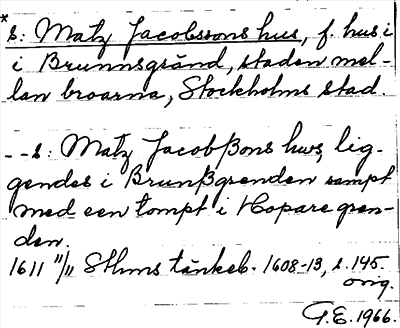 *
s: Matz Jacobssons hus, f. hus i
i Brunnsgränd, staden mel-
lan broarna, Stockholms stad.
--s: Matz Jacobßons huus, lig-
gendes i Brunßgrenden sampt
med een tompt i Kopare gren-
den.
1611 11/11 Sthms tänkeb. 1608-13, s. 145.
orig.
G.E. 1966.